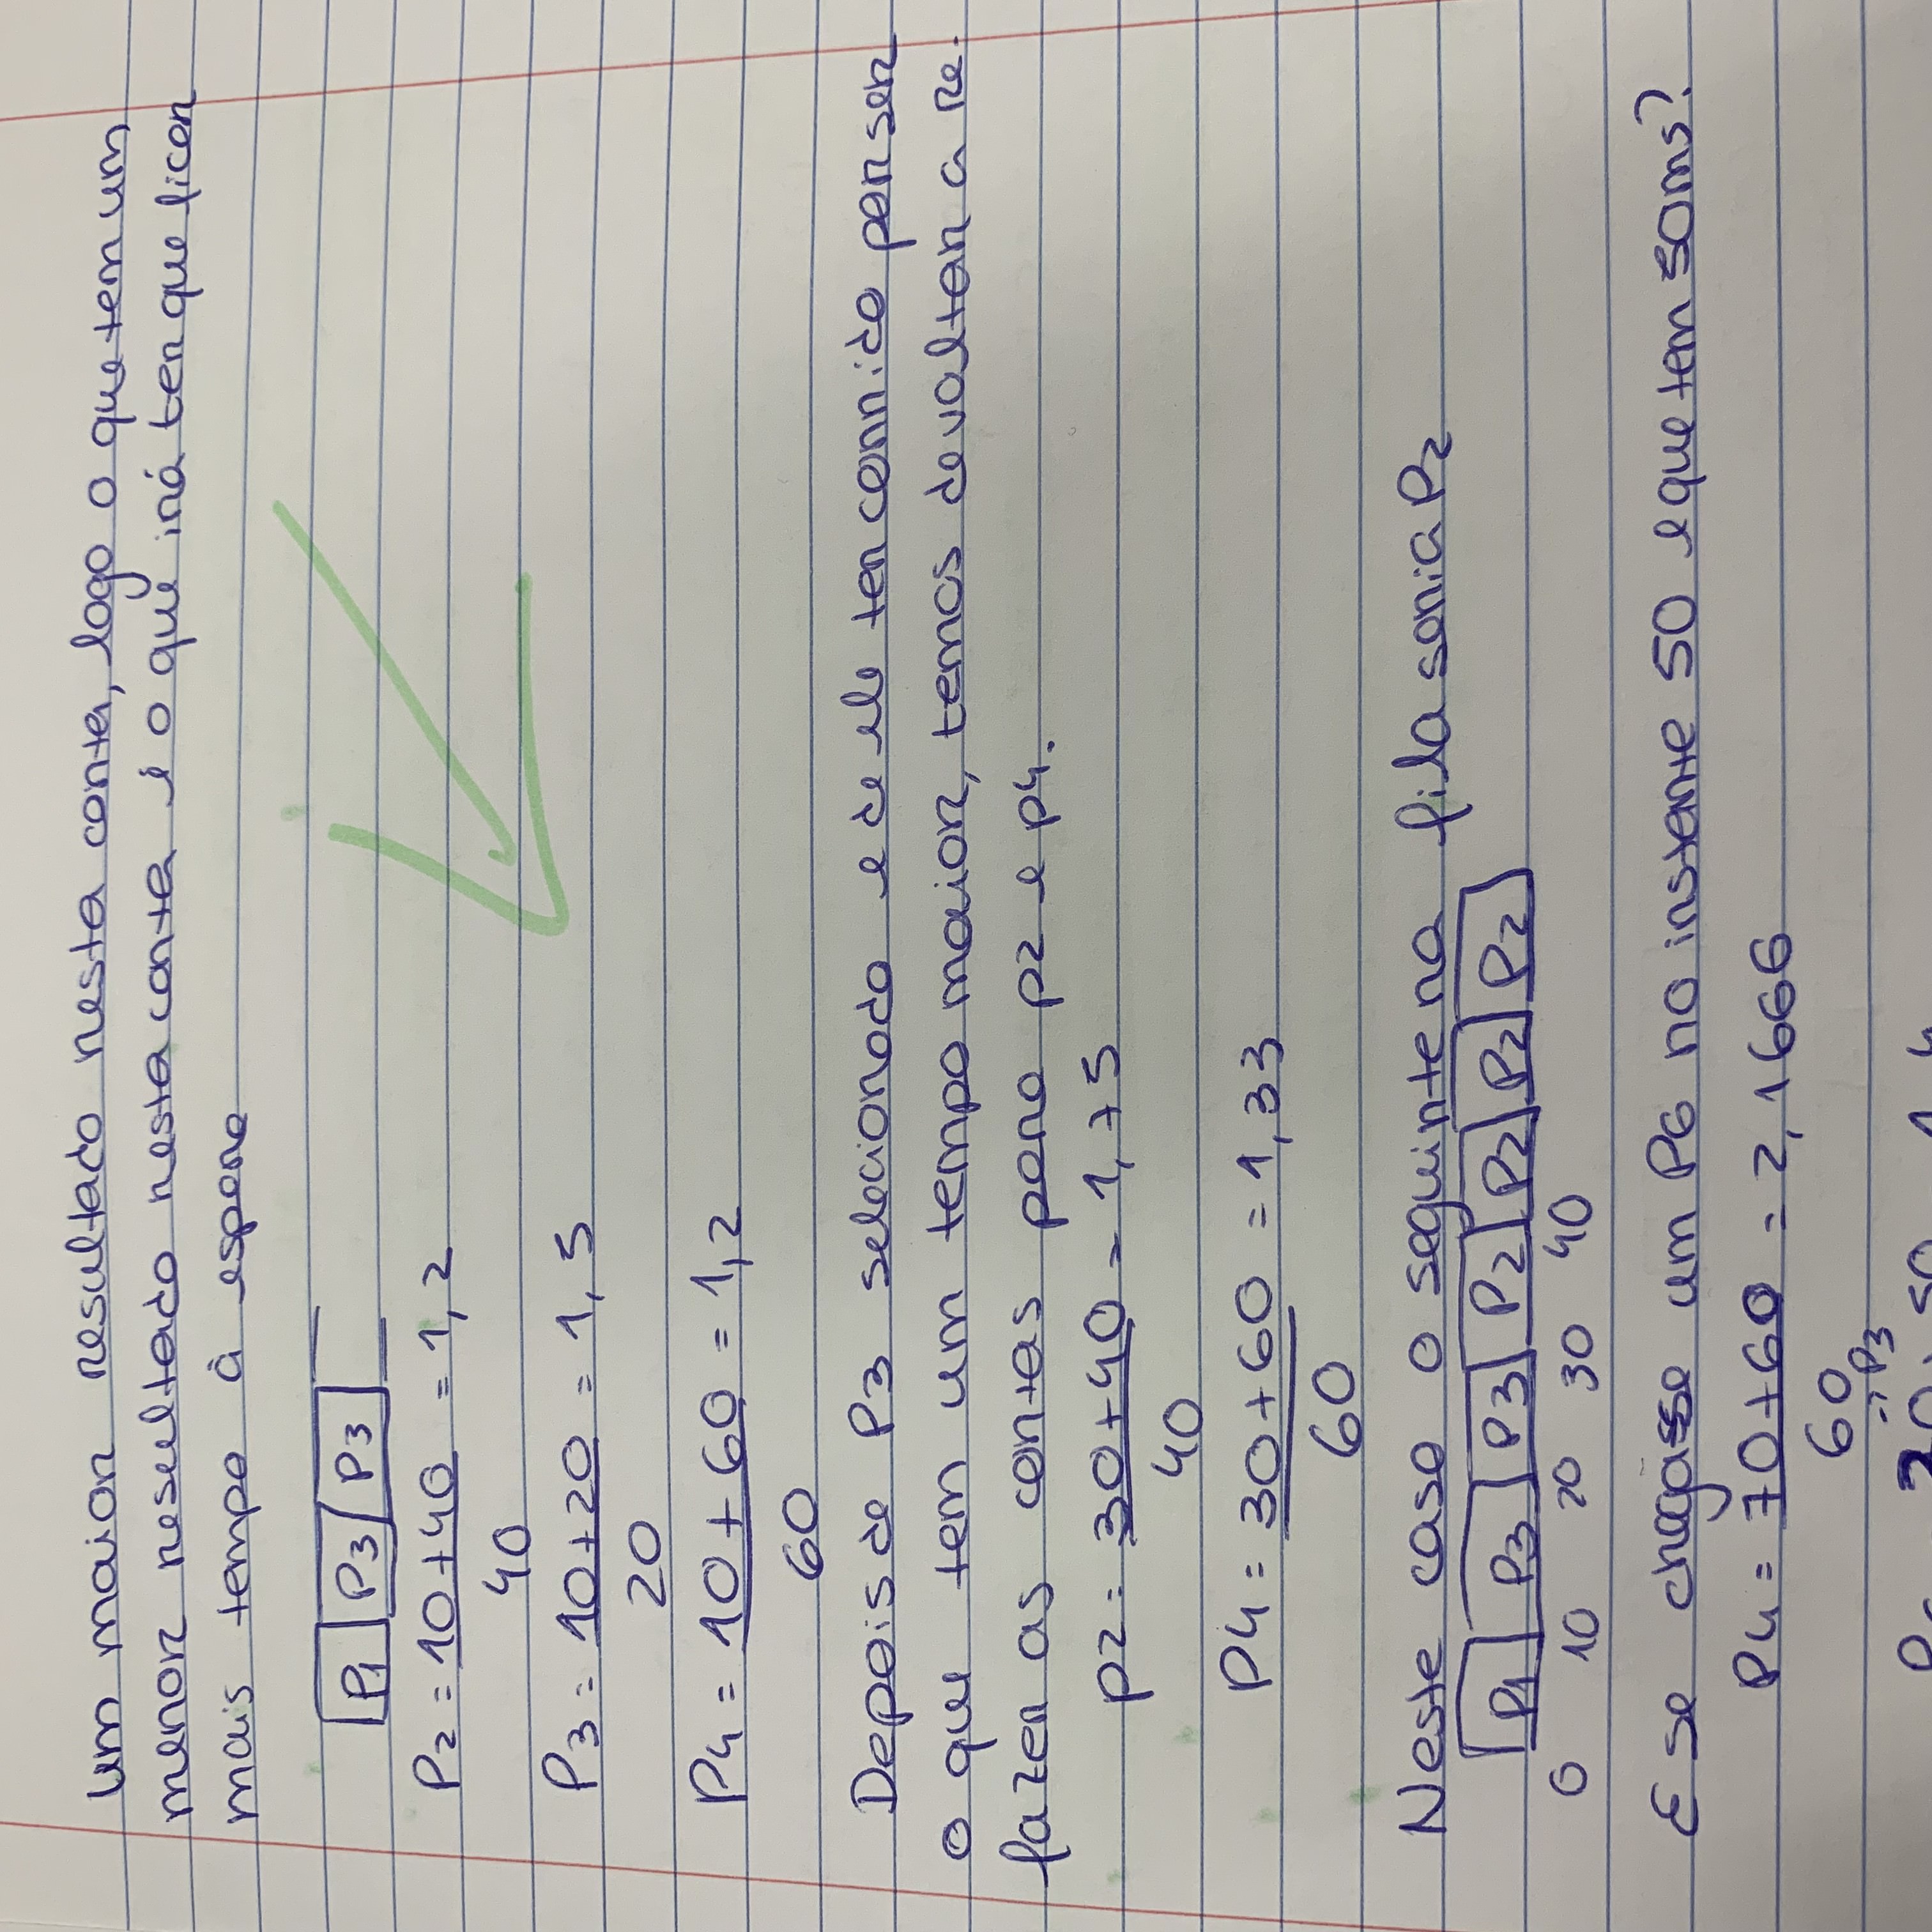 um maior resultado nesta conta, logo o que tem um
menor resultado nesta conta é o que irá ter que ficar
mais tempo à espera
P1 P3 P3
P2 = 10+40 = 1,2
40
P3 = 10+20 = 1,5
20
P4 = 10+60 = 1,2
60
Depois de P3 selecionado e de ele ter corrido por ser
o que tem um tempo maior, temos de voltar a re-
fazer as contas para p2 e p4.
p2 = 30+40 = 1,75
40
P4 = 30+60 = 1,33
60
Neste caso o seguinte na fila seria P2
P1 P3 P3 P2 P2 P2 P2
0 10 20 30 40
E se chegasse um P6 no instante 50 e que tem 50ms?
P4 = 70+60 = 2,1666
60
-> P3
50 1,4